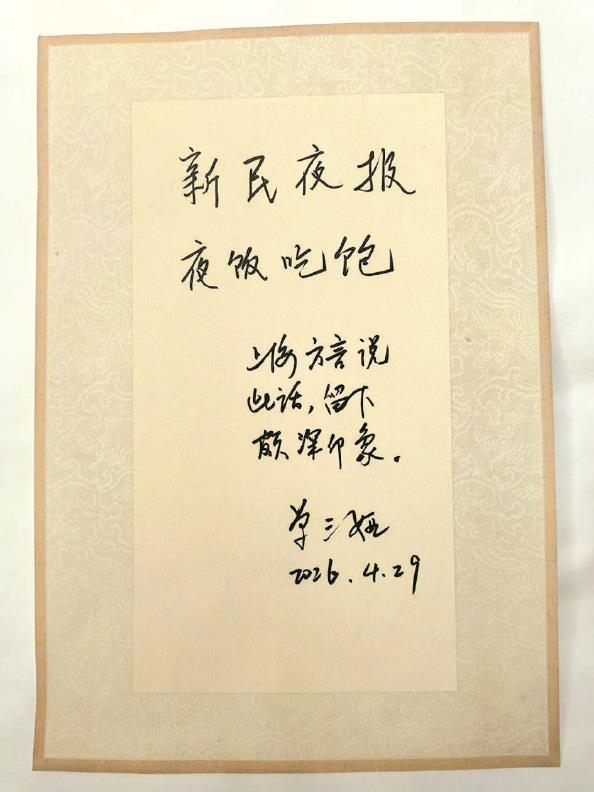 新民夜报
夜饭吃饱
上海方言说
此话,留下
颇深印象。
单三娅
2026.4.29